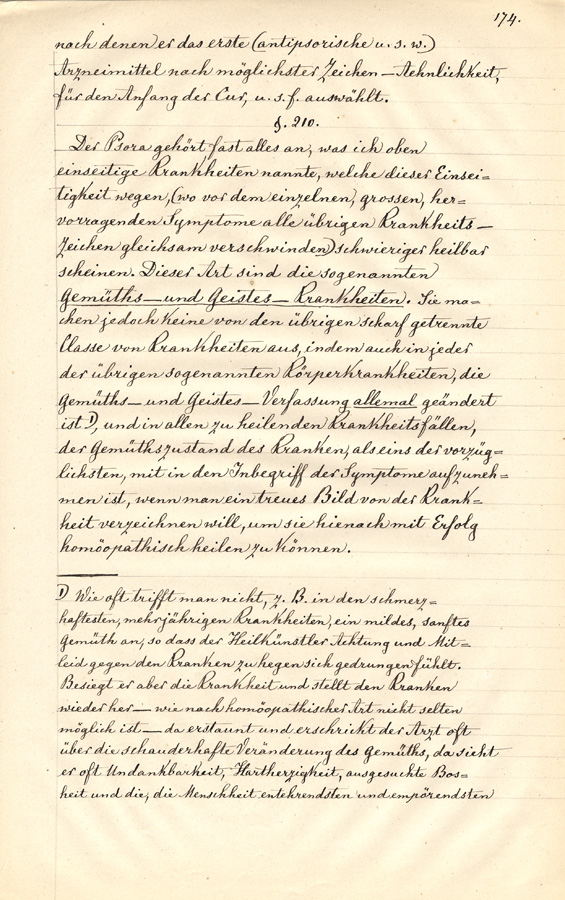 174.
nach denen er das erste (antipsorische u. s. w.)
Arzneimittel nach möglichster Zeichen-Aehnlichkeit,
für den Anfang der Cur, u. s. f. auswählt.
§. 210.
Der Psora gehört fast alles an, was ich oben
einseitige Krankheiten nannte, welche dieser Einsei=
tigkeit wegen, (wo vor dem einzelnen, grossen, her=
vorragenden Symptome alle übrigen Krankheits-
Zeichen gleichsam verschwinden) schwieriger heilbar
scheinen. Dieser Art sind die sogenannten
Gemüths- und Geistes-Krankheiten. Sie ma=
chen jedoch keine von den übrigen scharf getrennte
Classe von Krankheiten aus, indem auch in jeder
der übrigen sogenannten Körperkrankheiten, die
Gemüths- und Geistes-Verfassung allemal geändert
ist 1), und in allen zu heilenden Krankheitsfällen,
der Gemüthszustand des Kranken, als eins der vorzüg=
lichsten, mit in den Inbegriff der Symptome aufzuneh=
men ist, wenn man ein treues Bild von der Krank=
heit verzeichnen will, um sie hienach mit Erfolg
homöopathisch heilen zu können.
1) Wie oft trifft man nicht, z. B. in den schmerz=
haftesten, mehrjährigen Krankheiten, ein mildes, sanftes
Gemüth an, so dass der Heilkünstler Achtung und Mit=
leid gegen den Kranken zu hegen sich gedrungen fühlt.
Besiegt er aber die Krankheit und stellt den Kranken
wieder her — wie nach homöopathischer Art nicht selten
möglich ist — da erstaunt und erschrickt der Arzt oft
über die schauderhafte Veränderung des Gemüths, da sieht
er oft Undankbarkeit, Hartherzigkeit, ausgesuchte Bos=
heit und die, die Menschheit entehrendsten und empörendsten